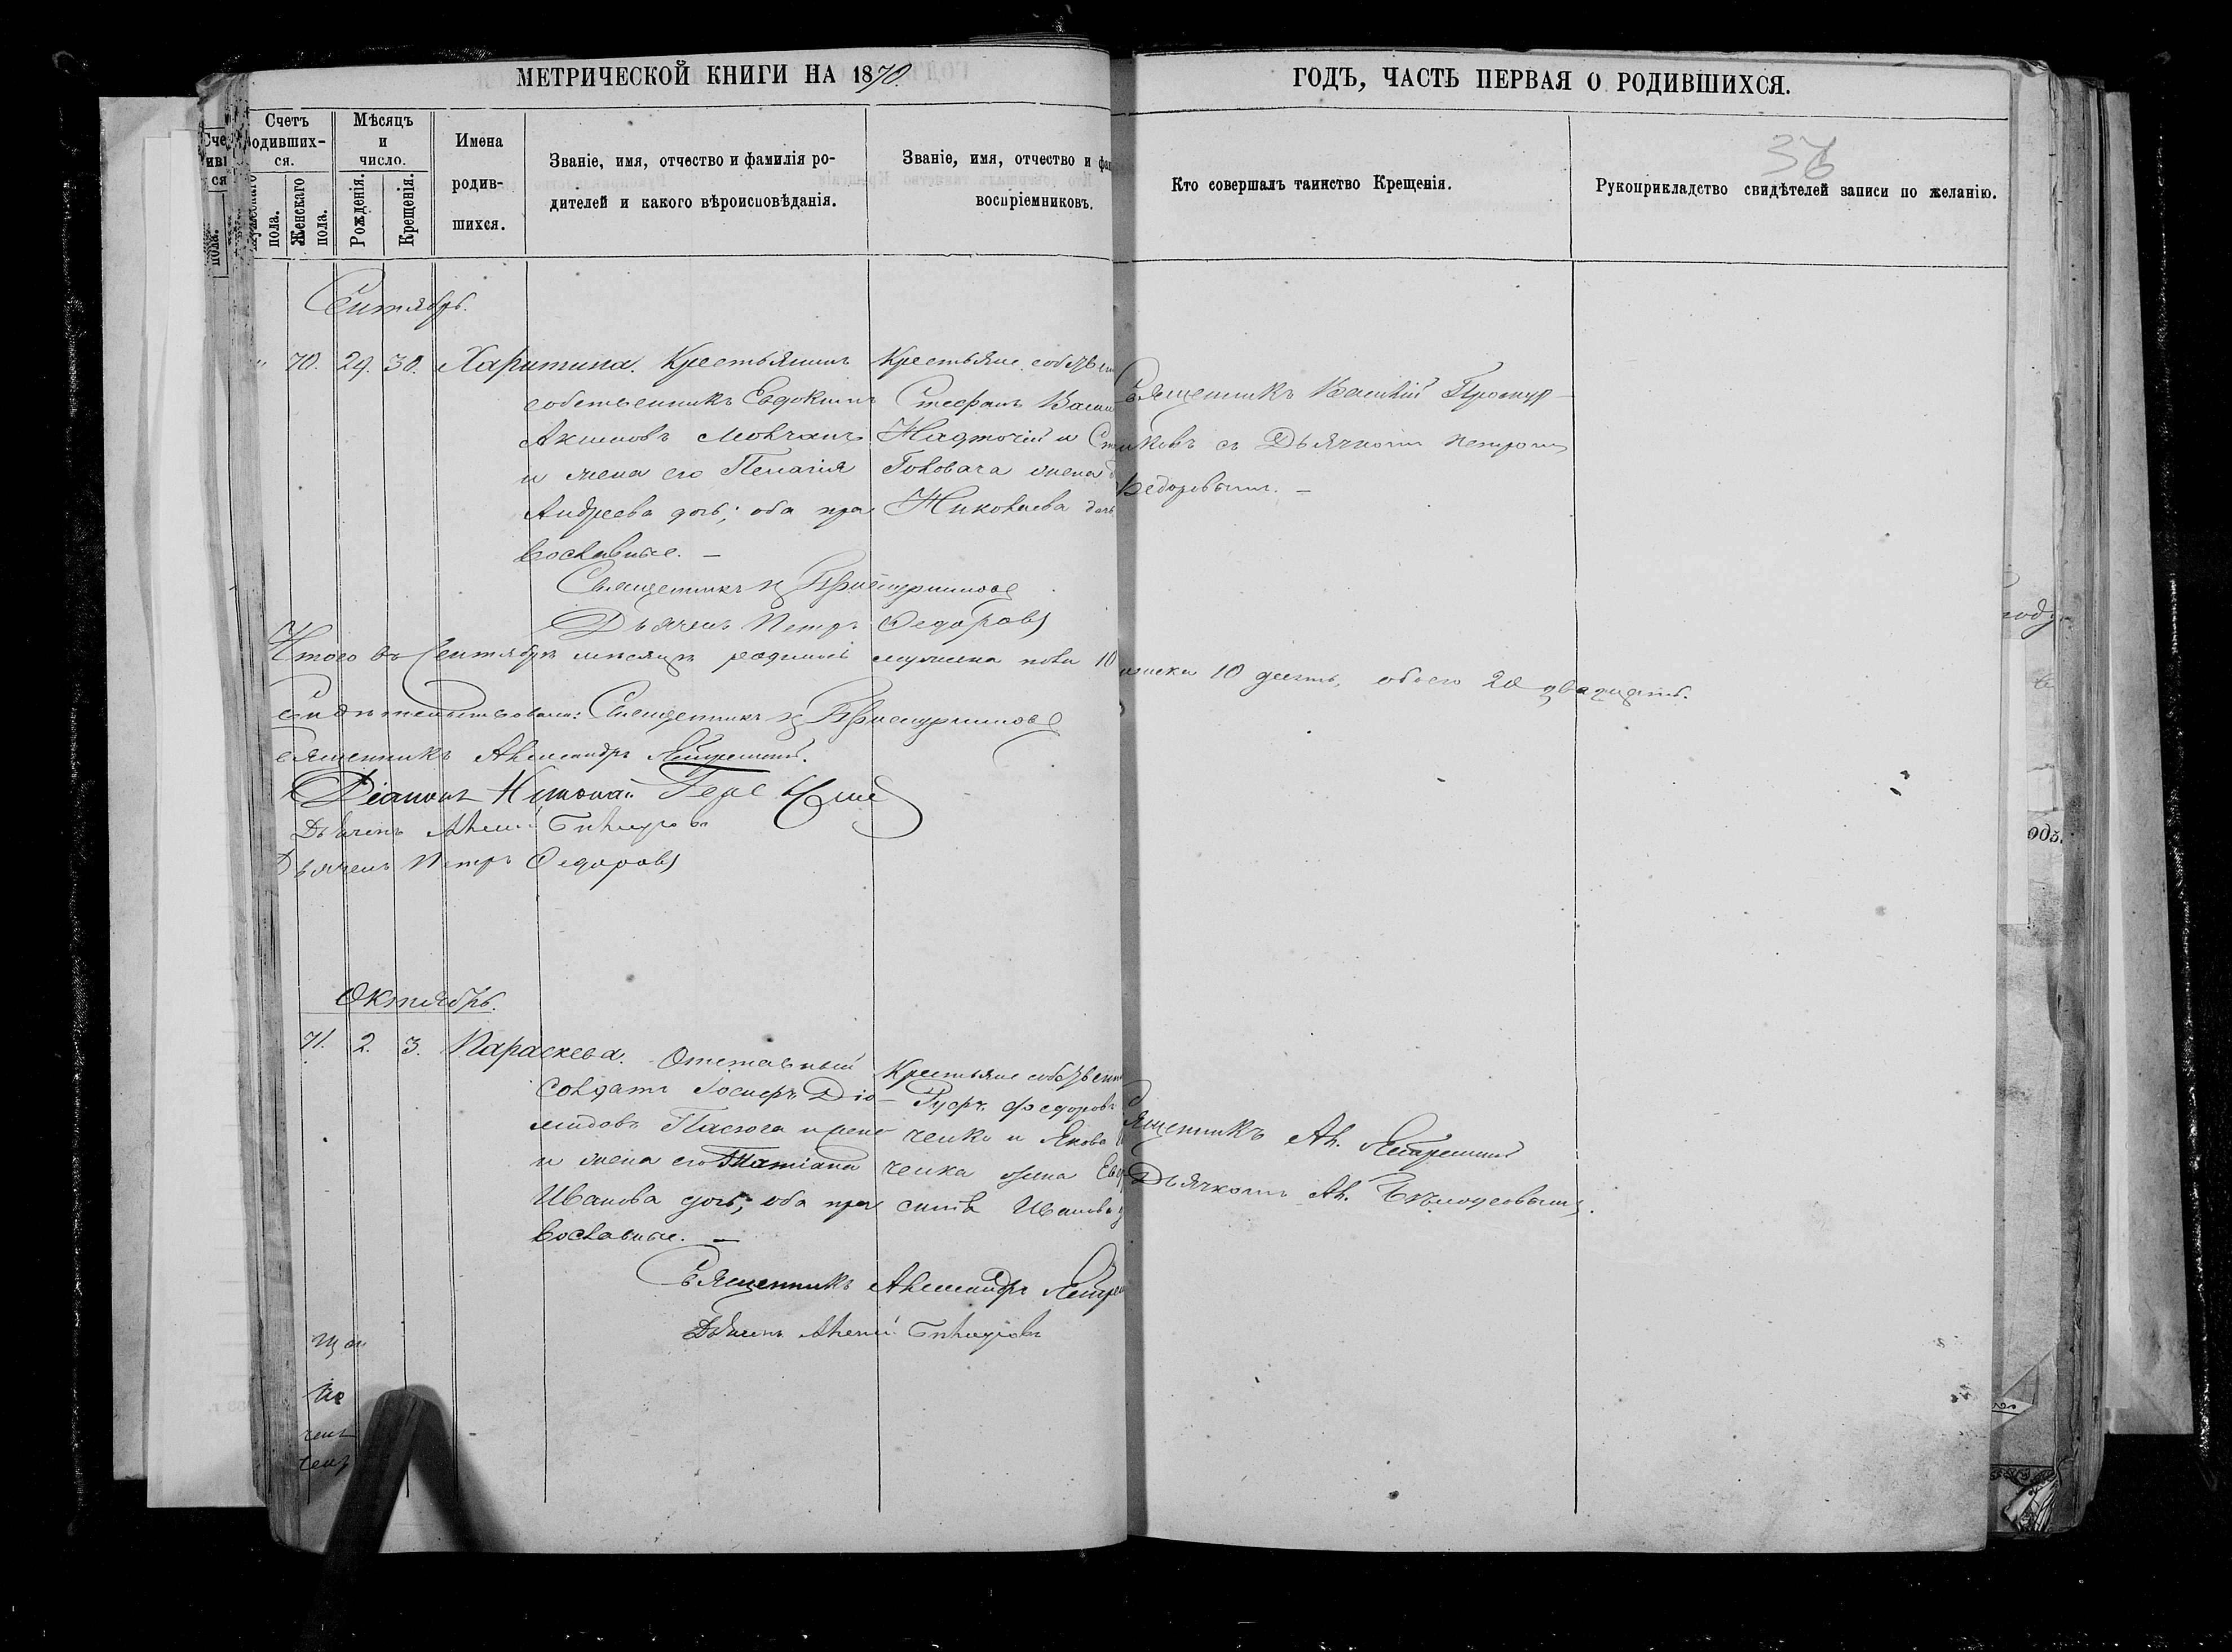 МЕТРИЧЕСКОЙ КНИГИ НА 1870.
ГОДЪ, ЧАСТЬ ПЕРВАЯ О РОДИВШИХСЯ.
36
Счетъ родивших-ся.
Мужескаго пола.
Женскаго пола.
Мѣсяцъ и число.
Рожденія.
Крещенія.
Имена родив-шихся.
Званіе, имя, отчество и фамилія ро-
дителей и какого вѣроисповѣданія.
Званіе, имя, отчество и фам
воспріемниковъ.
Кто совершалъ таинство Крещенія.
Рукоприкладство свидѣтелей записи по желанію.
Сентябрь.
" 70. 29. 30. Харитина. Крестьянинъ
собственникъ Евдокимъ
Акимовъ Мовчанъ
и жена его Пелагія
Андреева дочь; оба пра
вославные. —
Крестьяне собствен
Стефанъ Васил
Надточій и Ст
Головача жена
Николаева дочь
Священникъ Василій Проскур-
никовъ съ Дьячкомъ Петромъ
Ѳедоровымъ. —
Священникъ В Проскурниковъ
Дьячекъ Петръ Ѳедоровъ
Итого въ Сентябрѣ мѣсяцѣ родилось мужеска пола 10 женска 10 десять, обоего 20 двадцать.
Свидѣтельствовали: Священникъ В Проскурниковъ
Священникъ Александръ
Діаконъ Николай
Дьячекъ Алексій
Дьячекъ Петръ Ѳедоровъ
Октябрь.
71. 2. 3. Параскева. Отставный
Солдатъ Іосифъ Діо-
мидовъ
и жена его Татіана
Иванова дочь; оба пра
вославные. —
Крестьяне собствен
Федоровъ
ченко и Якова
ченка жена Евф
синія Иванова д
Священникъ Ал.
Дьячкомъ Ал.
Священникъ Александръ
Дьячекъ Алексій